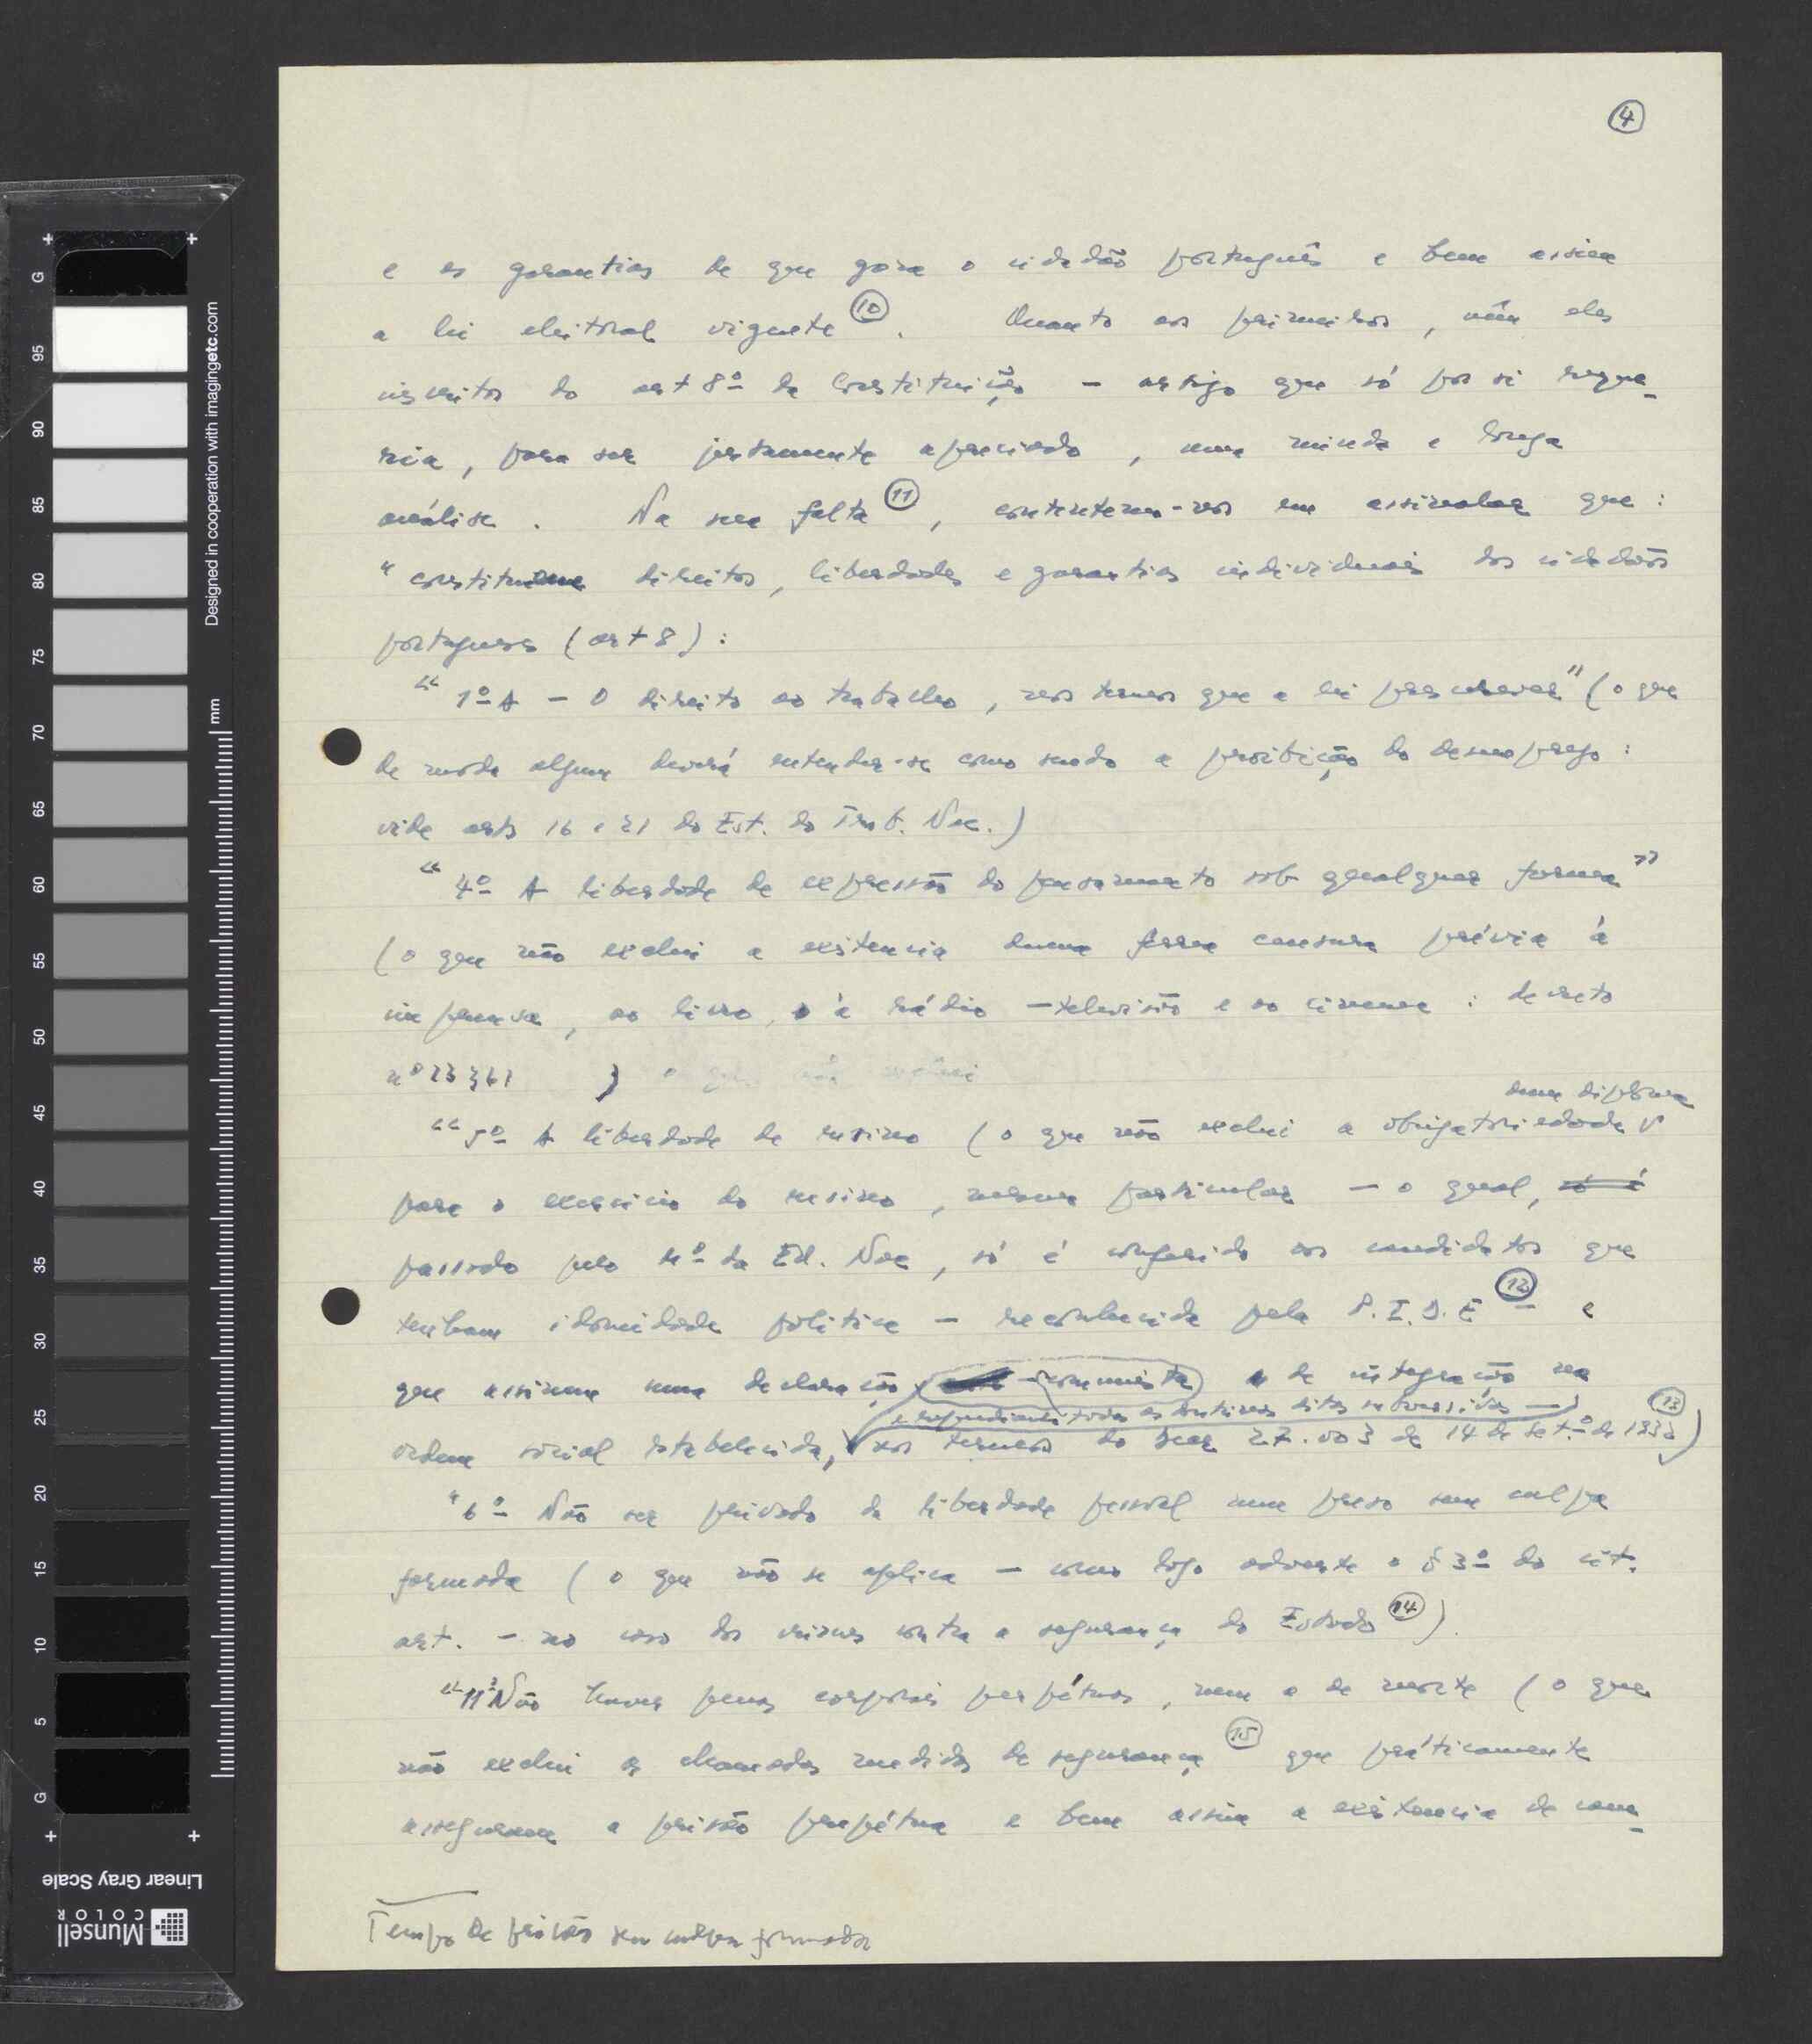 4
e as garantias de que goza o cidadão português e bem assim
a lei eleitoral vigente 10. Quanto aos primeiros, vêm eles
inscritos do art 8º da Constituição – artigo que só por si reque-
ria, para ser justamente apreciado, uma miuda e longa
análise. Na sua falta 11, contentem-nos em assinalar que:
"constituem direitos, liberdades e garantias individuais dos cidadãos
portugueses (art 8):
"1º A – O direito ao trabalho, nos termos que a lei prescrever" (o que
de modo algum deverá entender-se como sendo a proibição do desemprego:
vide arts 16 e 21 do Est. do Trab. Nac.)
"4º A liberdade de expressão do pensamento sob qualquer forma"
(o que não exclui a existencia duma férrea censura prévia à
imprensa, ao livro, à rádio-televisão e ao cinema: decreto
nº 23361 ) o que não exclui
dum diploma
"5º A liberdade de ensino (o que não exclui a obrigatoriedade
para o exercicio do ensino, mesmo particular – o qual, só é
passado pelo Mº da Ed. Nac, só é conferido aos candidatos que
tenham idoneidade politica – reconhecida pela P.I.D.E 12 – e
que assinem uma declaração comunista de integração na
e repudiando todas as doutrinas ditas subversivas – 13
ordem social estabelecida, nos termos do 27.003 de 14 de Setº de 193
"6º Não ser privado da liberdade pessoal nem preso sem culpa
formada (o que não se aplica – como logo adverte o § 3º do cit.
art. – no caso dos crimes contra a segurança do Estado 14).
"11º Não haver penas corporais perpétuas, nem a de morte (o que
não exclui as chamadas medidas de segurança 15 que práticamente
asseguram a prisão perpétua e bem assim a existencia de cam-
Tempo de prisão sem culpa formada
Designed in cooperation with imagingetc.com
mm
G 95 90 85 80 75 70 65 60 55 50 45 40 35 30 25 20 15 10 5 G
Linear Gray Scale
Munsell
COLOR